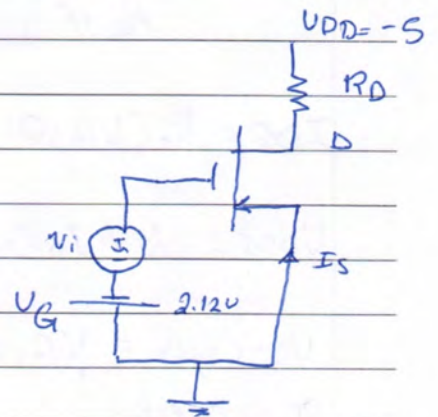 VDD= -5
RD
D
vi
Is
VG
2.12V